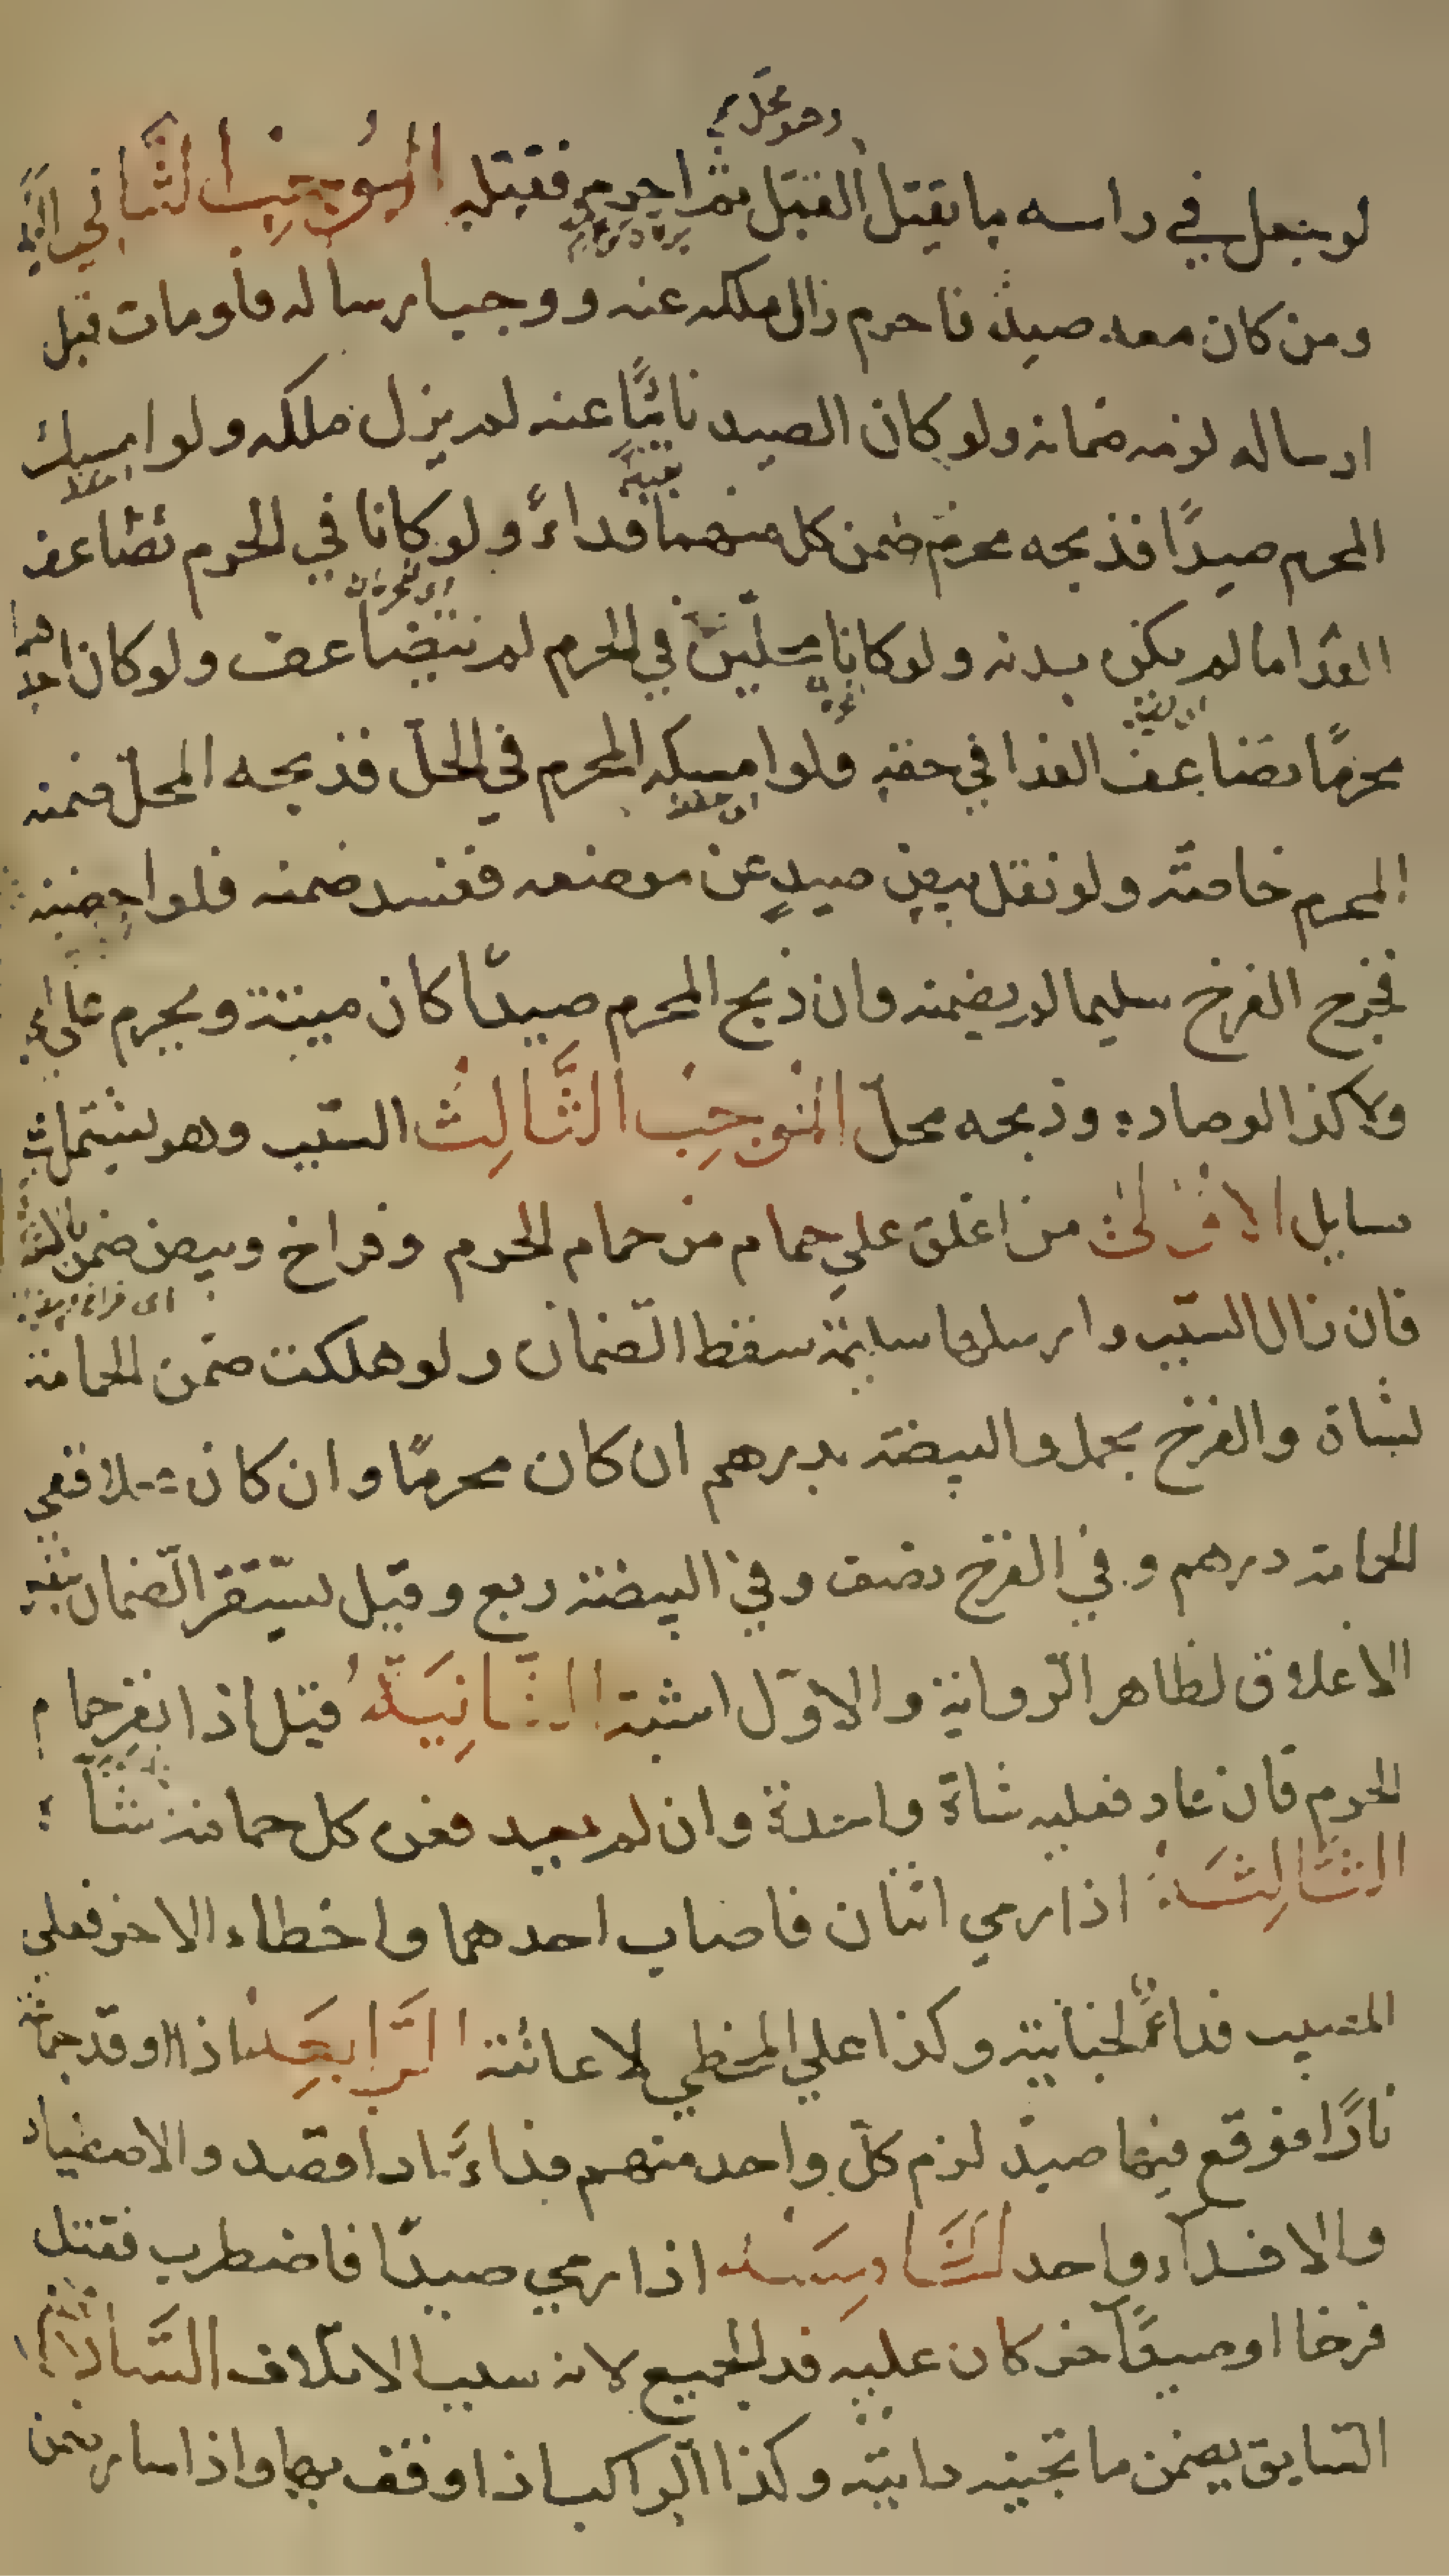 وهو محلّ
لو جعل في راسه ما يقتل القمّل ثم احرم فقتله الموجب الثاني اليد
ومن كان معه صيد فاحرم زال ملكه عنه ووجب ارساله فلو مات قبل
ارساله لزمه ضمانه ولو كان الصيد نائيًا عنه لم يزل ملكه ولو امسك
المحرم صيدًا فذبحه محرم ضمن كل منهما فداءً ولو كانا في الحرم تضاعف
الفدا ما لم يكن بدنه ولو كانا محلّين في الحرم لم يتضاعف ولو كان احدهما
محرمًا تضاعف الفدا في حقه ولو امسكه المحرم في الحلّ فذبحه المحلّ ضمنه
المحرم خاصّة ولو نقل بيض صيدٍ عن موضعه ففسد ضمنه فلو احضنه
فخرج الفرخ سليما لم يضمنه وان ذبح المحرم صيدًا كان ميتة ويحرم على
ولا كذا لو صاده وذبحه محلّ الموجب الثالث السّبب وهو يشتمل
مسايل الاولى من اغلق علي حمام من حمام الحرم وفراخ وبيض ضمن
فان زال السّبب وارسلها سليمة سقط الضّمان ولو هلكت ضمن الحمامة
بشاة والفرخ بحمل والبيضة بدرهم ان كان محرمًا وان كان محلا ففي
الحمامة درهم وفي الفرخ نصف وفي البيضة ربع وقيل يستقر الضّمان بنفس
الاغلاق لظاهر الرّواية والاوّل اشبه الثّانية قيل اذا نفر حمام
الحرم فان عاد فعليه شاة واحدة وان لم يعد فعن كل حمامة شاة
الثّالثة اذا رمي اثنان فاصاب احدهما واخطاء الاخر فعلي
المصيب فداءٌ لجنايته وكذا علي المخطي لاعانته الرّابعة اذا اوقد جماعة
نارًا فوقع فيها صيد لزم كلّ واحد منهم فداءً اذا قصد والاصطياد
والا فداء واحد اذا رمي صيدًا فاضطرب فقتل
فرخا او صيدًا آخر كان عليه فدا الجميع لانه سبب الاتلاف السّادسة
السّايق يضمن ما تجنيه دابّته وكذا الرّاكب اذا وقف بها واذا سار ضمن